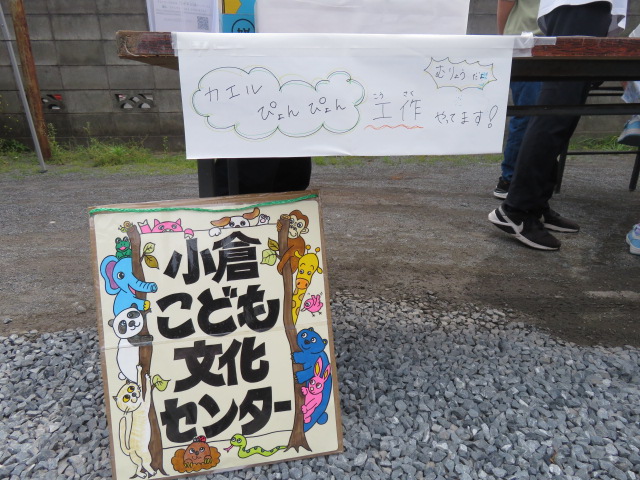 カエル
ぴょんぴょん
こうさく
工作
むりょうだよ!
やってます!
小倉
こども
文化
センター